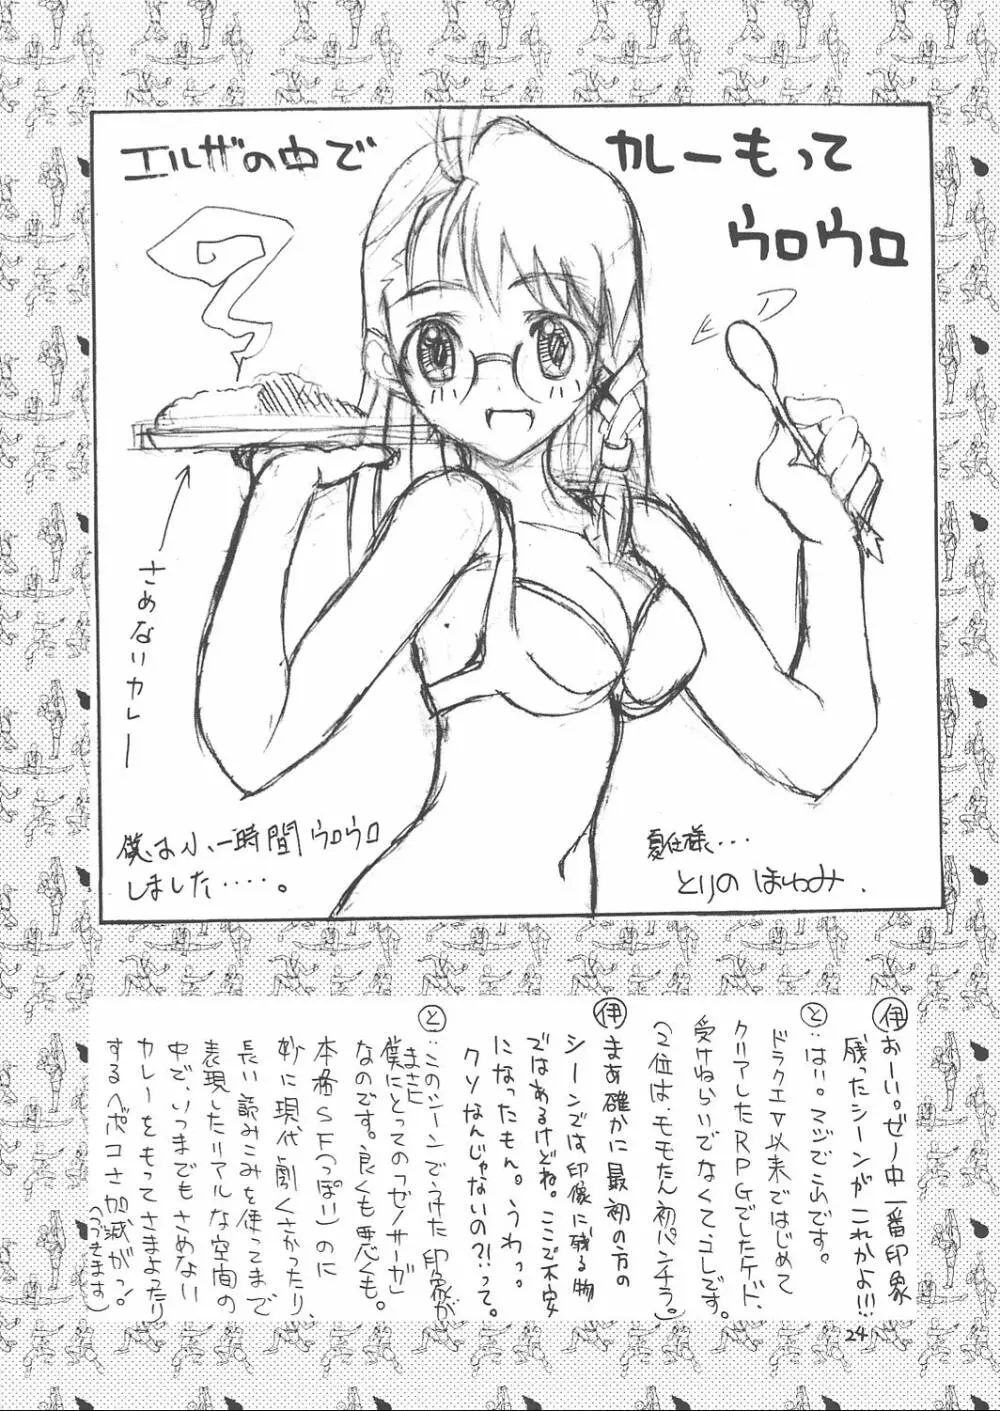 エルザの中で
カレーもって
ウロウロ
さめないカレー
僕は小一時間ウロウロ
しました‥‥。
夏仕様、・・・
とりの ほわみ.
伊 おーい。ゼノ中一番印象
残ったシーンがこれかよ!!!
と ‥はい。マジでこれです。
ドラクエV以来ではじめて
クリアしたRPGでしたケド、
受けねらいでなくて、コレです。
(2位は、モモたん初パンチラ。)
伊 まあ確かに最初の方の
シーンでは印像に残る物
ではあるけどね。ここで不安
になったもん。うわっ。
クソなんじゃないの?!って。
と ‥このシーンでうけた印象が
まさに
僕にとっての「ゼノサーガ」
なのです。良くも悪くも。
本格SF(っぽい)のに
妙に現代劇くさかったり、
長い読みこみを使ってまで
表現したリアルな空間の
中で、いつまでもさめない
カレーをもってさまよったり
するヘボコさ加減がっ!
(つづきます)
24